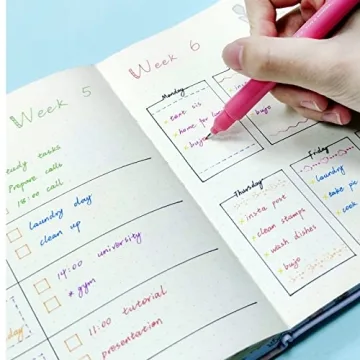 Week 5
ready tasks
Prepare calls
18:00 call
laundry day
clean up
14:00 university
* gym
11:00 tutorial
presentation
Week 6
Monday
home for
bujo
bujo
Thursday
insta post
clean stamps
wash dishes
bujo
Friday
laundry
take pic
cook